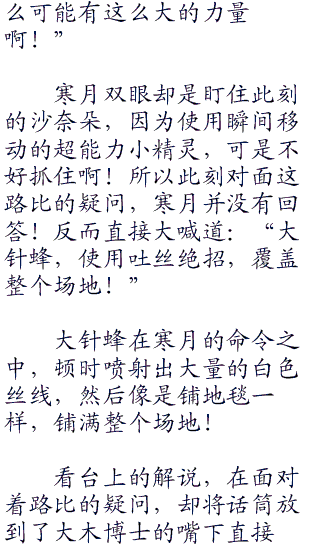 么可能有这么大的力量
啊！”
寒月双眼却是盯住此刻
的沙奈朵，因为使用瞬间移
动的超能力小精灵，可是不
好抓住啊！所以此刻对面这
路比的疑问，寒月并没有回
答！反而直接大喊道：“大
针蜂，使用吐丝绝招，覆盖
整个场地！”
大针蜂在寒月的命令之
中，顿时喷射出大量的白色
丝线，然后像是铺地毯一
样，铺满整个场地！
看台上的解说，在面对
着路比的疑问，却将话筒放
到了大木博士的嘴下直接